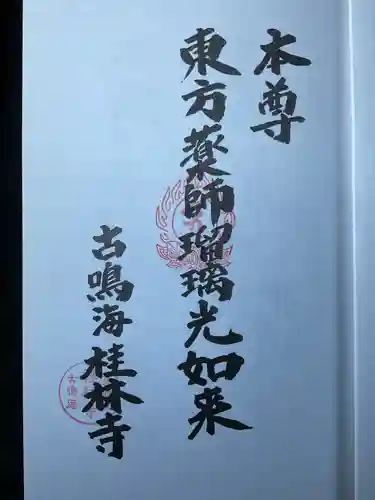 本尊
東方薬師瑠璃光如来
古鳴海桂林寺